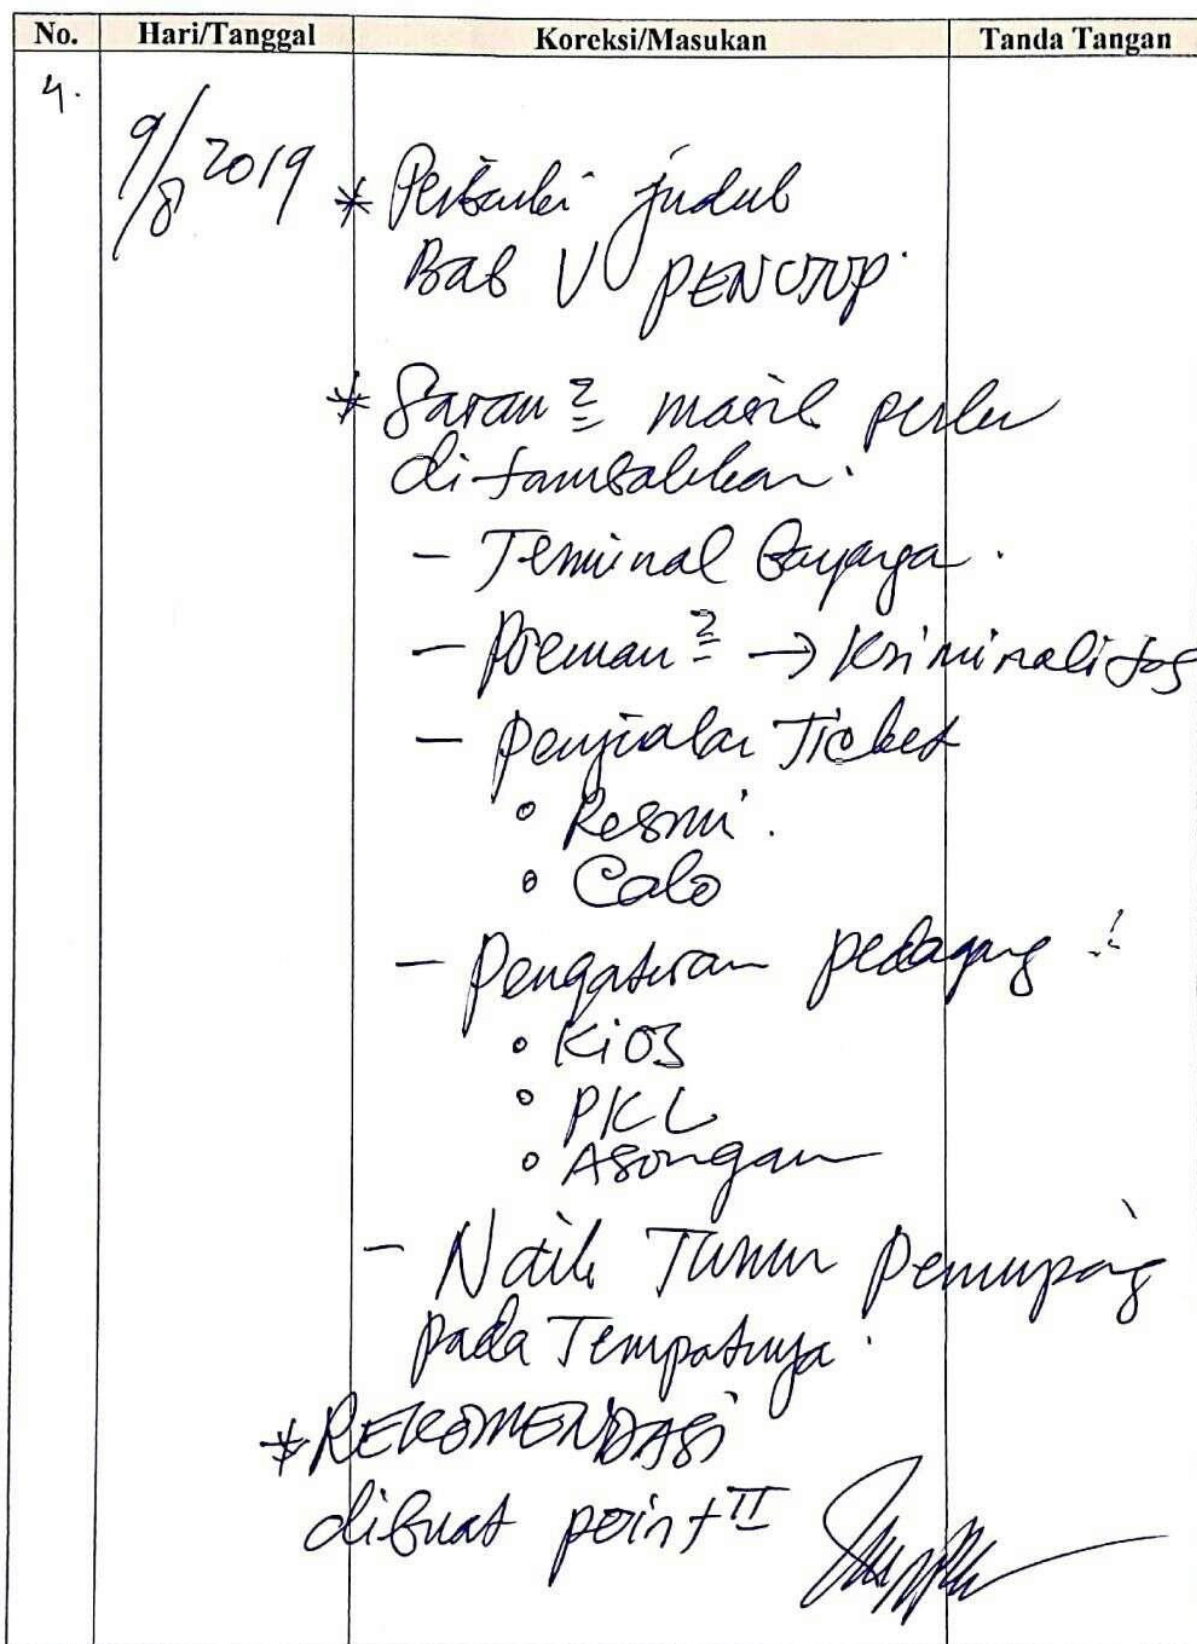 No. Hari/Tanggal Koreksi/Masukan Tanda Tangan
4.
9/8 2019
* Perbaiki judul
Bab V PENUTUP.
* Saran² masih perlu
ditambahkan.
- Terminal Bayangan.
- Preman² → Kriminalitas
- Penjualan Ticket
• Resmi.
• Calo
- Pengaturan pedagang
• Kios
• PKL
• Asongan
- Naik Turun Penumpang
pada Tempatnya.
* REKOMENDASI
dibuat point II